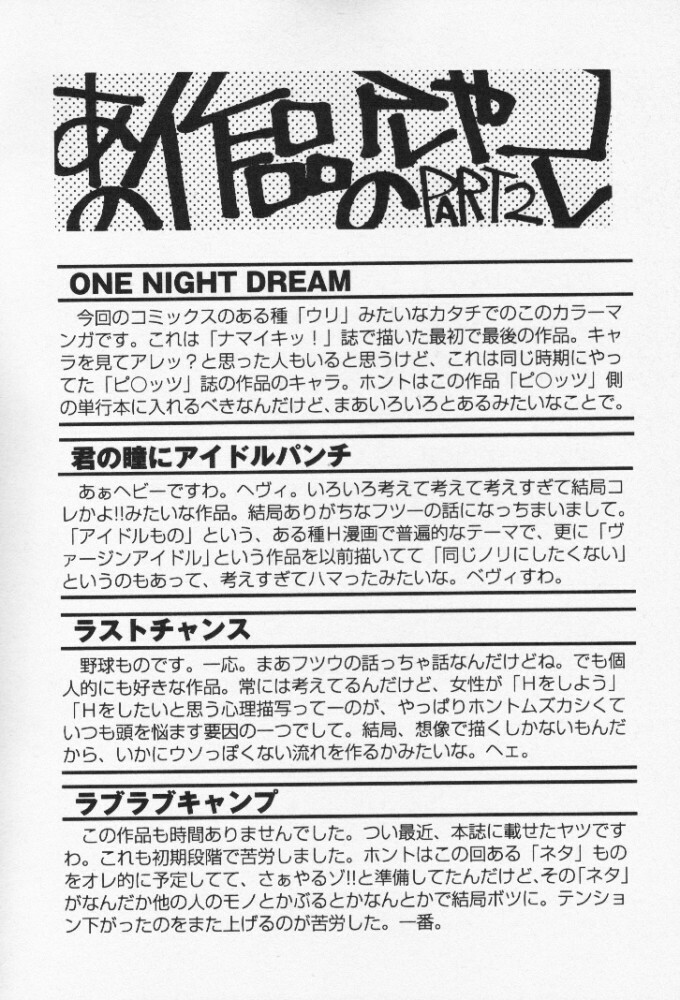 あの作品のアレやコレ PART2
ONE NIGHT DREAM
今回のコミックスのある種「ウリ」みたいなカタチでのこのカラーマ
ンガです。これは「ナマイキッ！」誌で描いた最初で最後の作品。キャ
ラを見てアレッ？と思った人もいると思うけど、これは同じ時期にやっ
てた「ピ○ッツ」誌の作品のキャラ。ホントはこの作品「ピ○ッツ」側
の単行本に入れるべきなんだけど、まあいろいろとあるみたいなことで。
君の瞳にアイドルパンチ
あぁヘビーですわ。ヘヴィ。いろいろ考えて考えて考えすぎて結局コ
レかよ!!みたいな作品。結局ありがちなフツーの話になっちまいまして。
「アイドルもの」という、ある種H漫画で普遍的なテーマで、更に「ヴ
ァージンアイドル」という作品を以前描いてて「同じノリにしたくない」
というのもあって、考えすぎてハマったみたいな。ベヴィすわ。
ラストチャンス
野球ものです。一応。まあフツウの話っちゃ話なんだけどね。でも個
人的にも好きな作品。常には考えてるんだけど、女性が「Hをしよう」
「Hをしたいと思う心理描写ってーのが、やっぱりホントムズカシくて
いつも頭を悩ます要因の一つでして。結局、想像で描くしかないもんだ
から、いかにウソっぽくない流れを作るかみたいな。ヘェ。
ラブラブキャンプ
この作品も時間ありませんでした。つい最近、本誌に載せたヤツです
わ。これも初期段階で苦労しました。ホントはこの回ある「ネタ」もの
をオレ的に予定してて、さぁやるゾ!!と準備してたんだけど、その「ネタ」
がなんだか他の人のモノとかぶるとかなんとかで結局ボツに。テンショ
ン下がったのをまた上げるのが苦労した。一番。